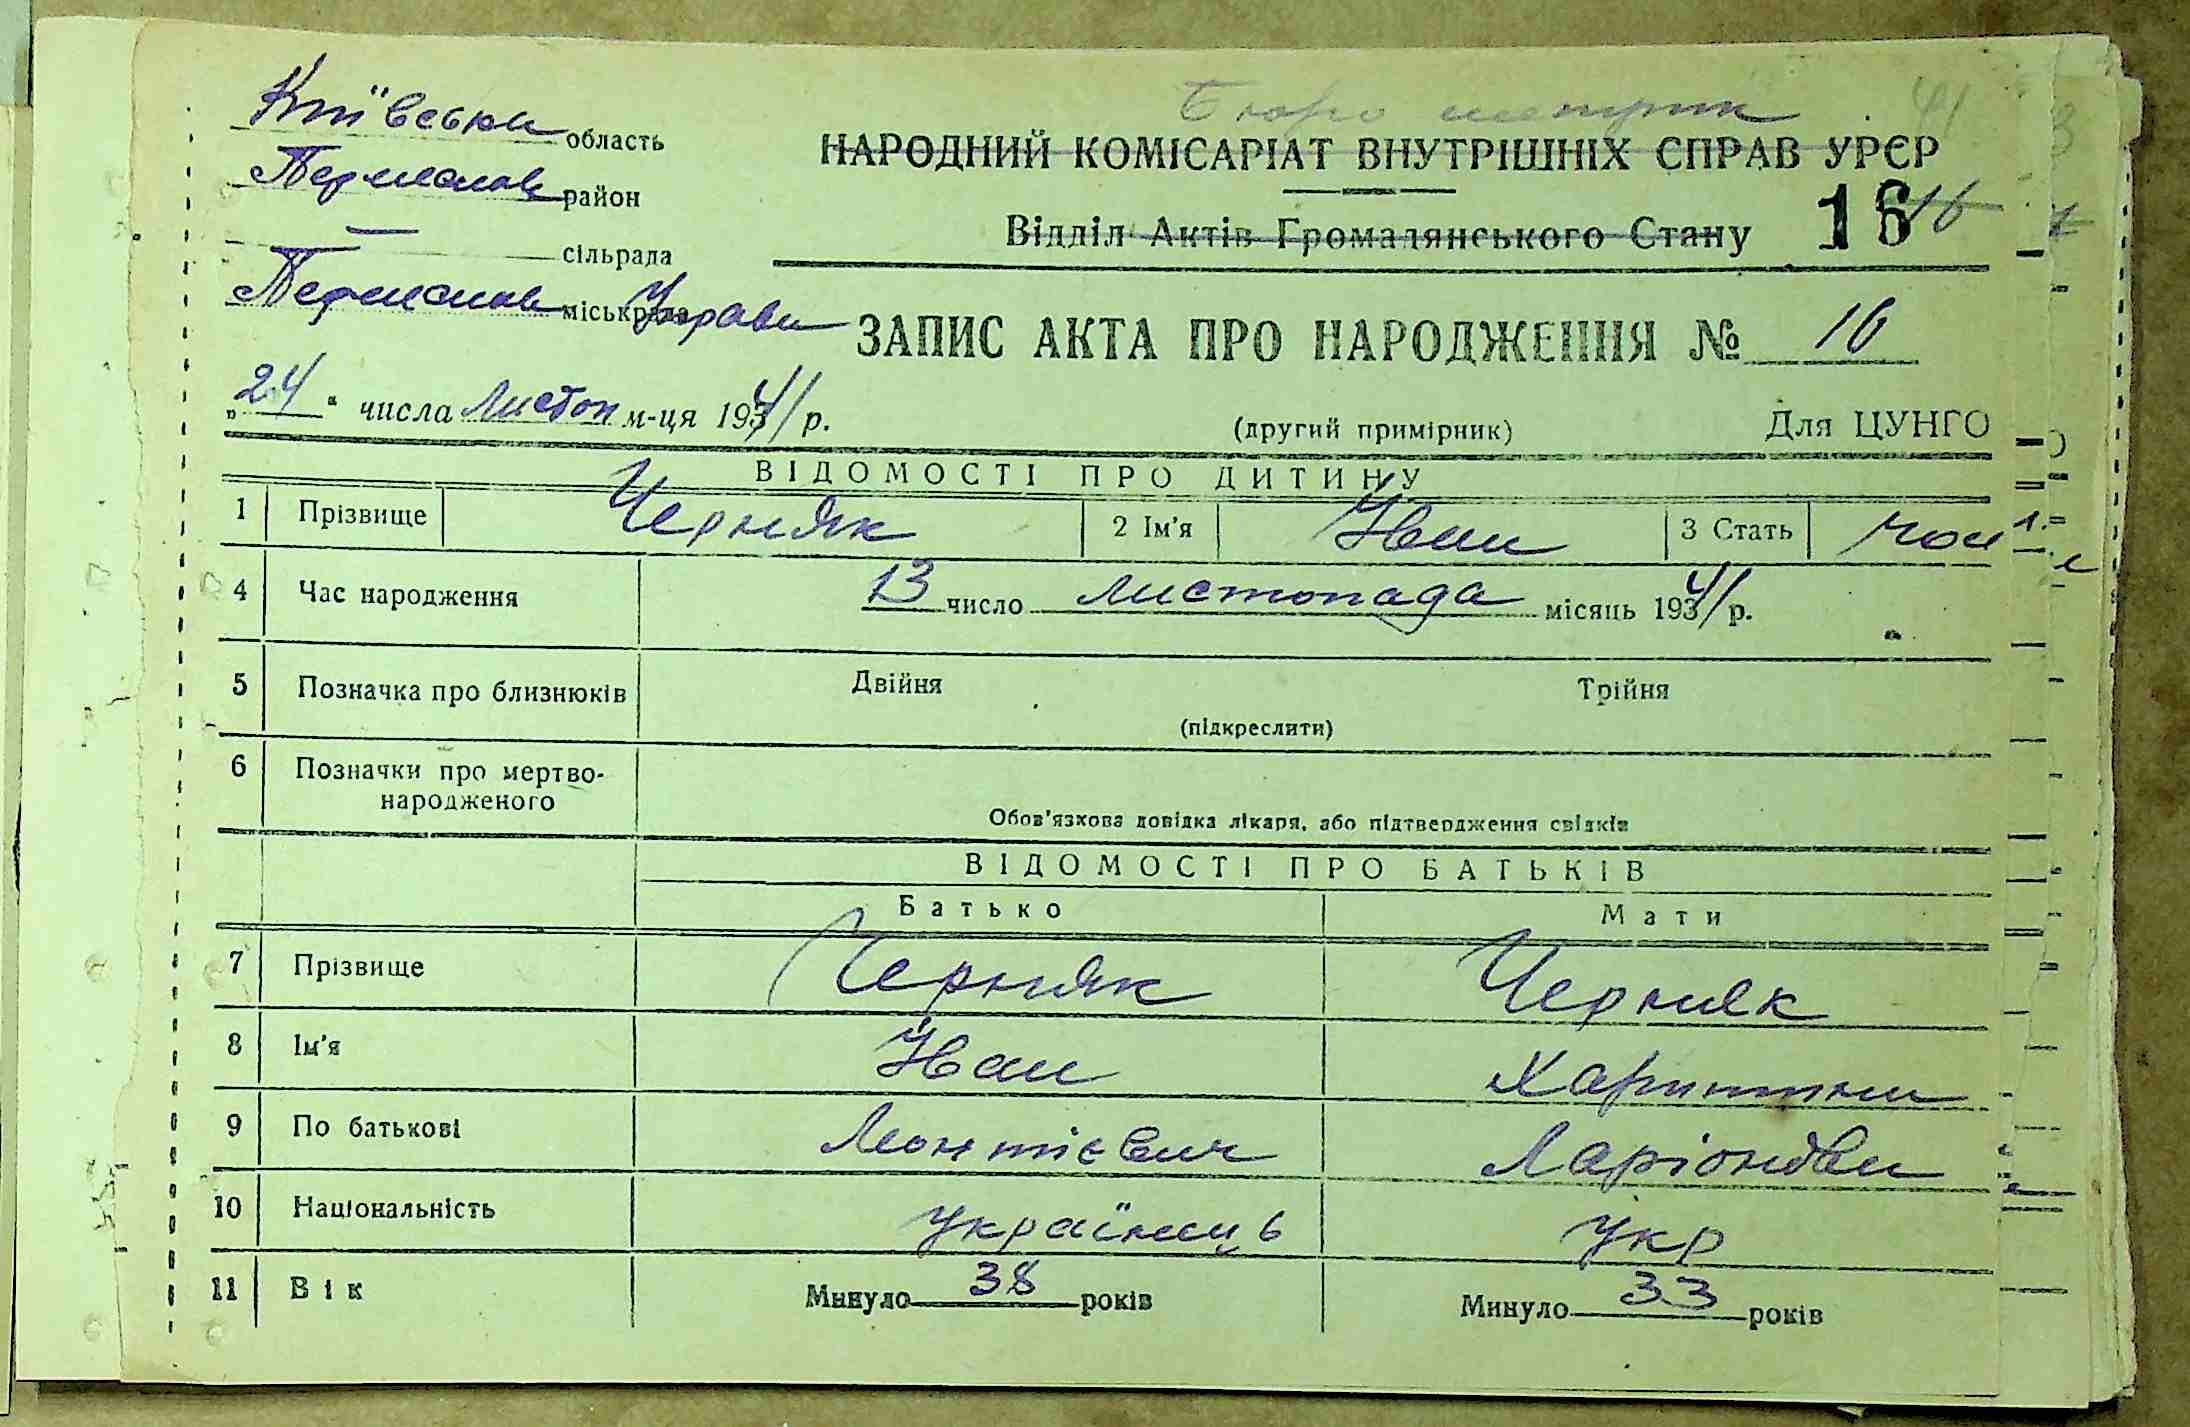 Бюро метрик
Київська область
НАРОДНИЙ КОМІСАРІАТ ВНУТРІШНІХ СПРАВ УРСР
Переяслав район
— сільрада
Відділ Актів Громадянського Стану 16 16
Переяслав міськрада Управа
ЗАПИС АКТА ПРО НАРОДЖЕННЯ № 16
„24“ числа Листоп м-ця 1941 р.
(другий примірник) Для ЦУНГО
ВІДОМОСТІ ПРО ДИТИНУ
1 Прізвище Черняк 2 Ім'я Іван 3 Стать чол
4 Час народження 13 число листопада місяць 1941 р.
5 Позначка про близнюків Двійня Трійня
(підкреслити)
6 Позначки про мертво-
народженого
Обов'язкова довідка лікаря, або підтвердження свідків
ВІДОМОСТІ ПРО БАТЬКІВ
Батько Мати
7 Прізвище Черняк Черняк
8 Ім'я Іван Харитина
9 По батькові Леонтієвич Ларіонова
10 Національність українець укр
11 Вік Минуло 38 років Минуло 33 років